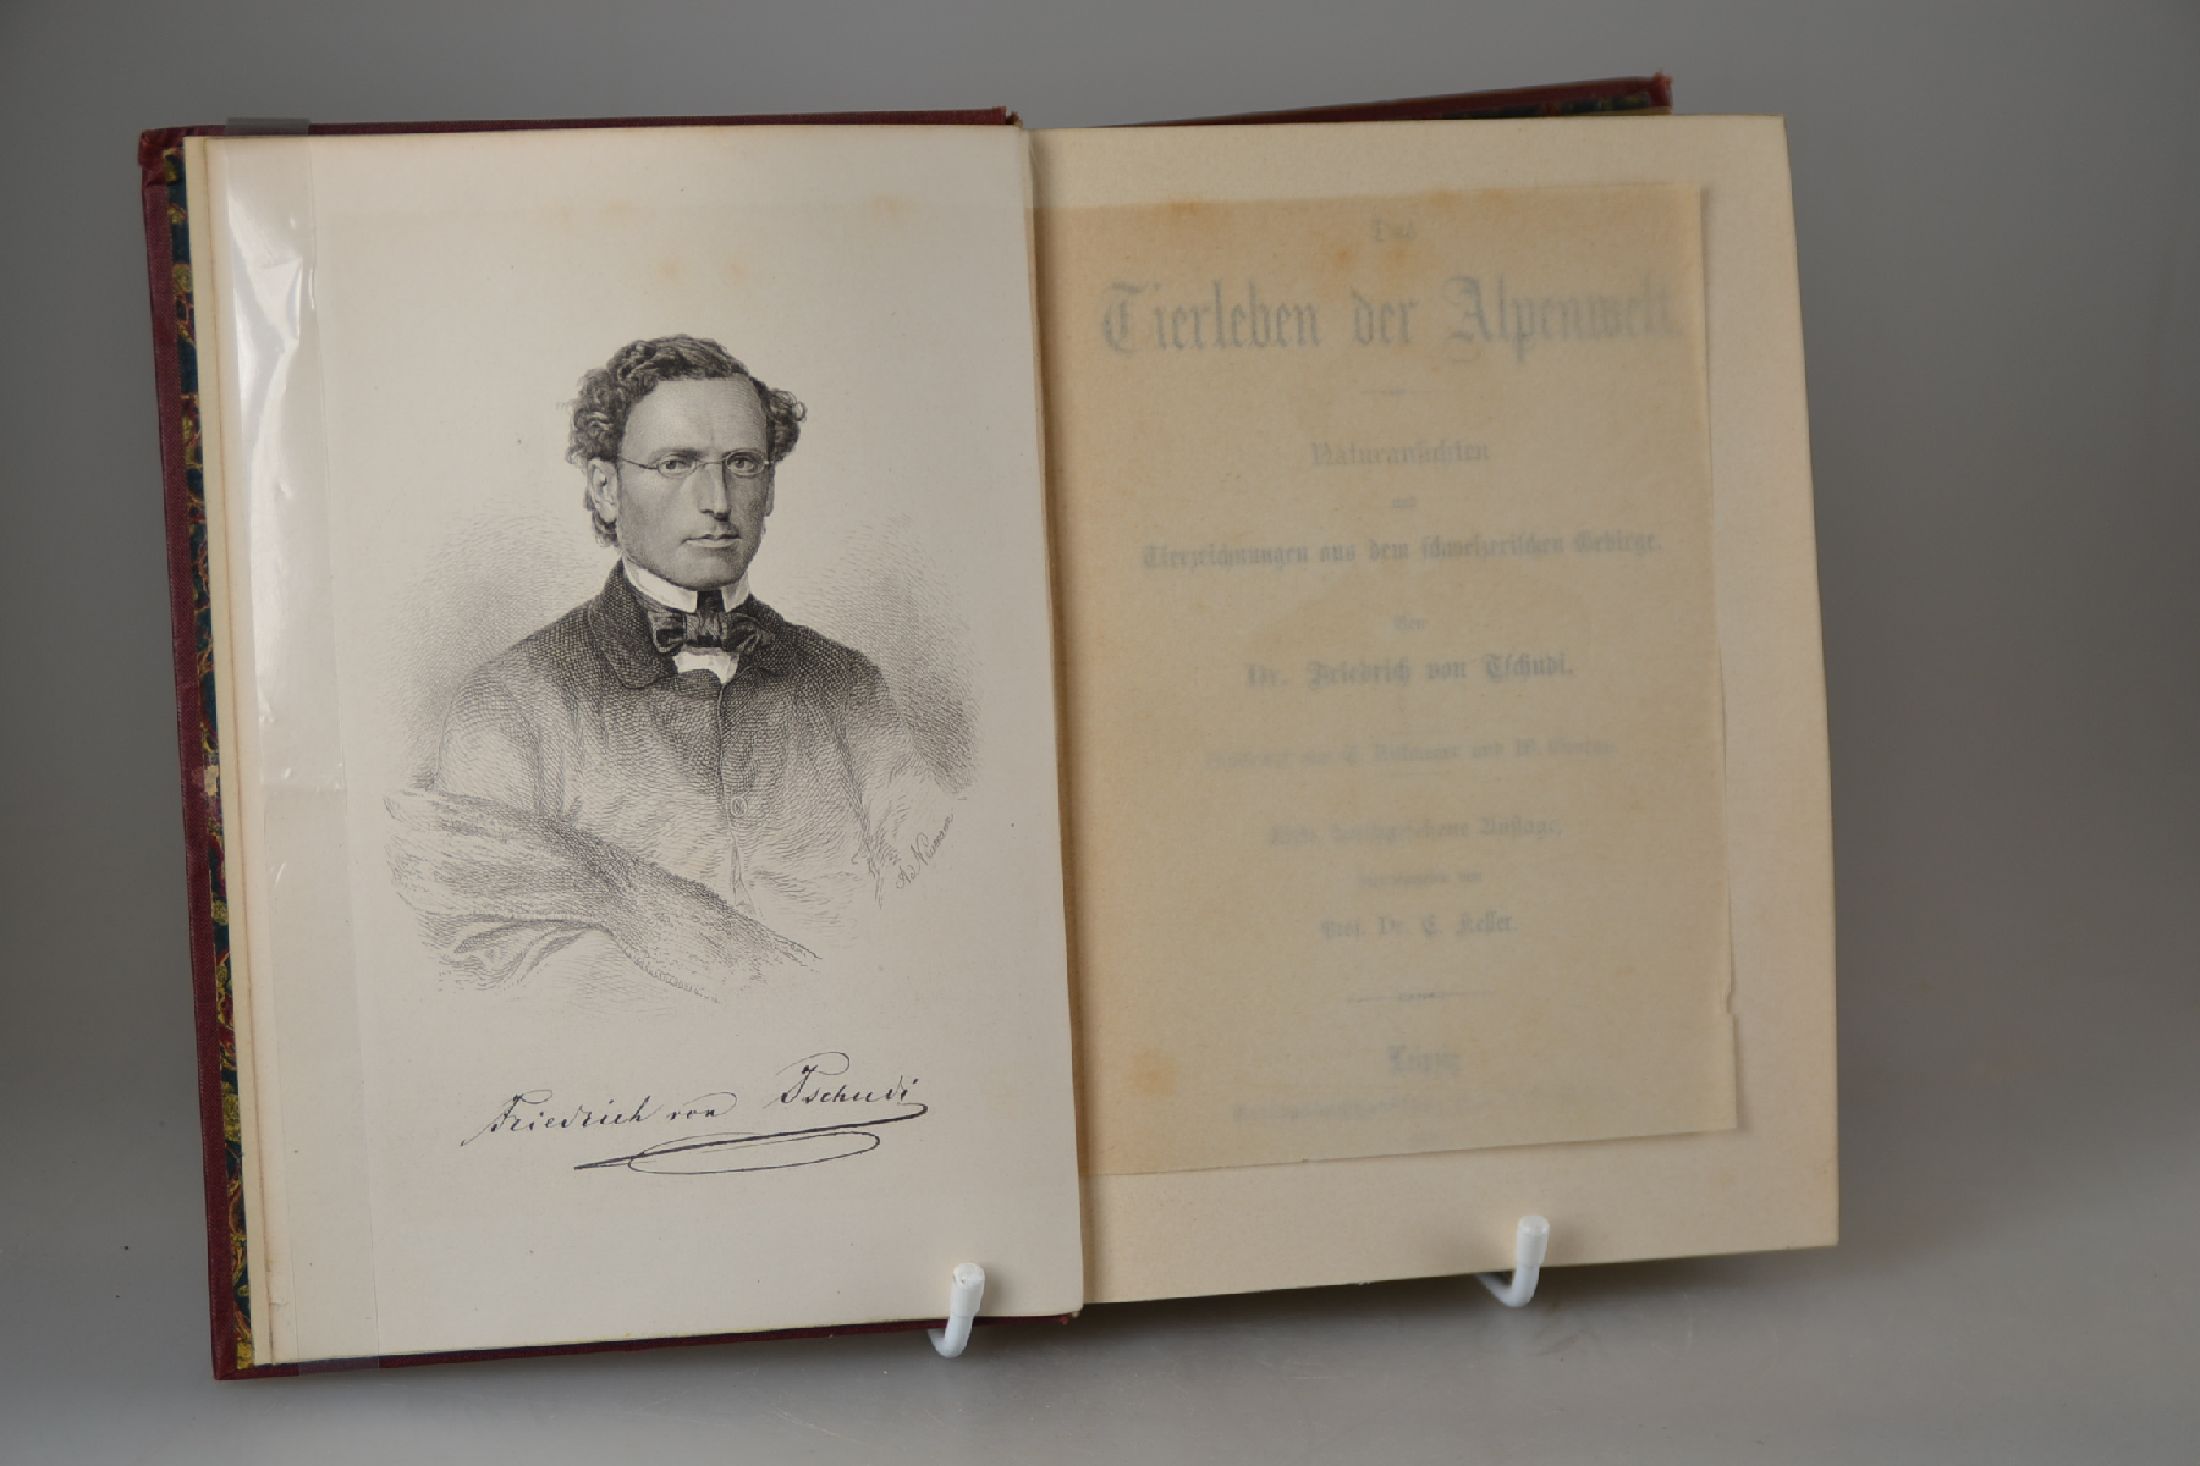 Ad Neumann
Friedrich von Tschudi
Das
Tierleben der Alpenwelt.
Naturansichten
und
Tierzeichnungen aus dem schweizerischen Gebirge.
Von
Dr. Friedrich von Tschudi.
und W.
durchgesehene Auflage,
von
Prof. Dr. C. Keller.
Leipzig